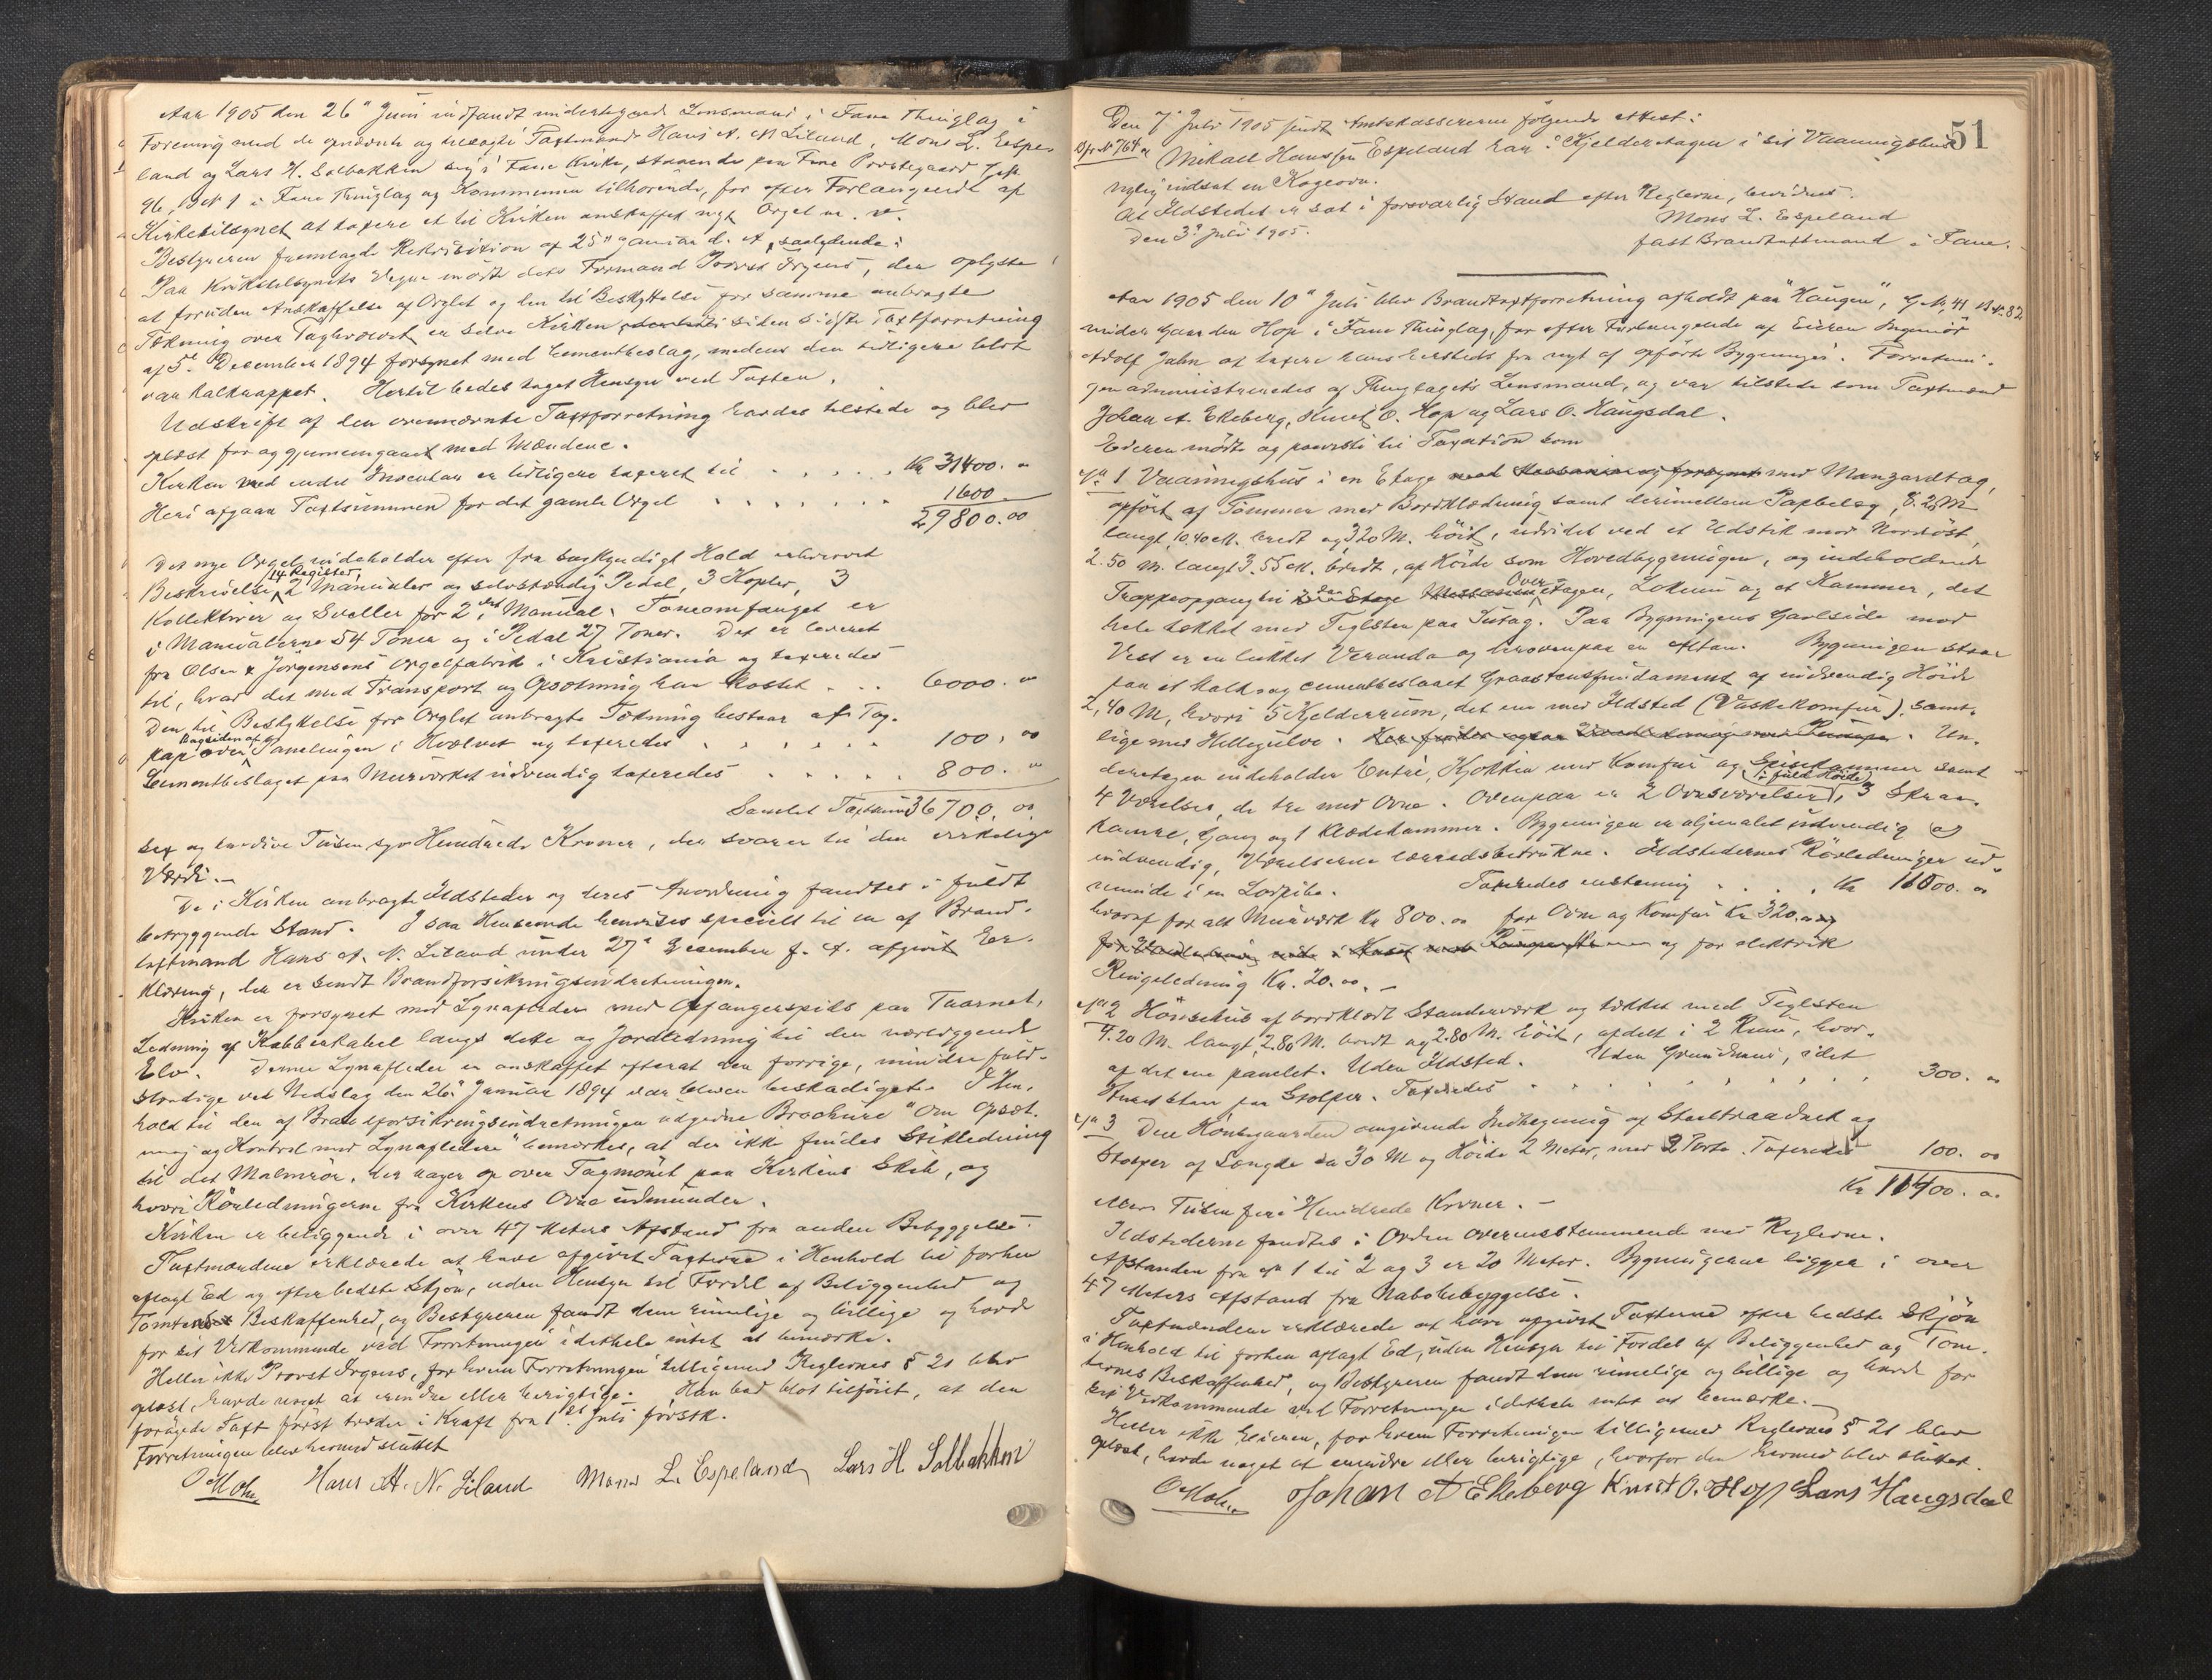 Aar 1905 den 26de Juni indfandt undertegnede Lensmand i Fane Thinglag i
Forening med de opnævnte og besagte Taxtmænd Hans A. N. Liland, Mons L. Espe-
land og Lars H. Solbakken sig i Fane Kirke, staaende paa Fane Prestegaard, G. N.
96, B. N. 1 i Fane Thinglag og Kommunen tilhørende, for efter Forlangende af
Kirketilsynet at taxere et til Kirken anskaffet nyt Orgel m. v.
Bestyreren fremlagde Rekvisition af 25de Januar d. A., saalydende:
Paa Kirketilsynets Vegne mødte dets Formand Provst Irgens, der oplyste
at foruden Anskaffelse af Orglet og den til Beskyttelse for samme anbragte
Tækning over Taghvælvet er selve Kirken siden sidste Taxtforretning
af 5te December 1894 forsynet med Cementbeslag, medens den tidligere blot
var kalkrappet. Hertil bedes taget Hensyn ved Taxten.
Udskrift af den ovennævnte Taxtforretning havdes tilstede og blev
oplæst for og gjennemgaaet med Mændene.
Kirken med endel Inventar er tidligere taxeret til . . . . . Kr 31400. "
Heri afgaar Taxtsummen for det gamle Orgel . . . . . . 1600 —
29800.00
Det nye Orgel indeholder efter fra sagkyndigt Hold erhvervet
Beskrivelse 14 Register, 2 Manualer og selvstændig Pedal, 3 Kopler, 3
Kollektiver og Sveller for 2det Manual. Toneomfanget er
i Manualerne 54 Toner og i Pedal 27 Toner. Det er leveret
fra Olsen & Jørgensens Orgelfabrik i Kristiania og taxeredes
til, hvad det med Transport og Opsætning har kostet . . . 6000. "
Den til Beskyttelse for Orglet anbragte Tækning bestaar af Tag-
pap over Bagsiden af Panelingen i Hvælvet og taxeredes . . . . . . 100. "
Cementbeslaget paa Murværket udvendig taxeredes . . . . . 800. "
Samlet Taxtsum 36700. 00
Sex og tredive Tusen syv Hundrede Kroner, der svarer til den virkelige
Værdi. —
De i Kirken anbragte Ildsteder og deres Anordning fandtes i fuldt
betryggende Stand. I saa Henseende henvises specielt til en af Brand-
taxtmand Hans A. N. Liland under 27de December f. A. afgivet Er-
klæring, der er sendt Brandforsikringsindretningen.
Kirken er forsynet med Lynafleder med Opfangerspids paa Taarnet,
Ledning af Kobberkabel langs dette og Jordledning til den nærliggende
Elv. Denne Lynafleder er anskaffet efterat den forrige, mindre fuld-
stændige ved Nedslag den 26de Januar 1894 var bleven beskadiget. I Hen-
hold til den af Brandforsikringsindretningen udgivne Brochure "Om Opsæt-
ning og Kontrol med Lynafledere" bemærkes, at der ikke findes Stikledning
til det Malmrør, der rager op over Tagmønet paa Kirkens Skib, og
hvori Rørledningerne fra Kirkens Ovne udmunder.
Kirken er beliggende i over 47 Meters Afstand fra anden Bebyggelse.
Taxtmændene erklærede at have afgivet Taxterne i Henhold til forhen
aflagt Ed og efter bedste Skjøn, uden Hensyn til Fordel af Beliggenhed og
Tomtens Beskaffenhed, og Bestyreren fandt dem rimelige og billige og havde
for sit Vedkommende ved Forretningen idethele intet at bemærke.
Heller ikke Provst Irgens, for hvem Forretningen tilligemed Reglernes § 21 blev
oplæst, havde noget at erindre eller berigtige. Han bad blot tilføiet, at den
forøgede Taxt først træder i Kraft fra 1ste Juli førstk.
Forretningen blev hermed sluttet
OMohn Hans A. N. Liland Mons L. Espeland Lars H Solbakken
51
Den 7de Juli 1905 sendt Amtskassereren følgende Attest:
Bfr. No 764 Mikael Hanssen Espeland har i Kjelderetagen i sit Vaaningshus
nylig indsat en Kogeovn.
At Ildstedet er sat i forsvarlig Stand efter Reglerne, bevidnes.
Den 3die Juli 1905. Mons L. Espeland
fast Brandtaxtmand i Fane.
Aar 1905 den 10de Juli blev Brandtaxtforretning afholdt paa "Haugen", G. No 41, B. No 82
under Gaarden Hop i Fane Thinglag, for efter Forlangende af Eieren Ingeniør
Adolf Jahn at taxere hans hersteds fra nyt af opførte Bygninger. Forretnin-
gen administreredes af Thinglagets Lensmand, og var tilstede som Taxtmænd
Johan A. Ekeberg, Knut O. Hop og Lars O. Haugsdal.
Eieren mødte og paaviste til Taxation som
No 1 Vaaningshus i en Etage med Mansardtag,
opført af Tømmer med Bordklædning samt derimellem Papbelæg, 8.20 M
langt, 10.40 M. bredt og 3.20 M. høit, udvidet ved et Udstik mod Nordøst,
2.50 M. langt 3.55 M. bredt, af Høide som Hovedbygningen, og indeholdende
Trappeopgang til Overetagen, Lokum og et Kammer, det
hele tækket med Teglsten paa Sutag. Paa Bygningens Gavlside mod
Vest er en lukket Veranda og herovenpaa en Altan. Bygningen staar
paa et kalk- og cementbeslaaet Graastensfundament af indvendig Høide
2,40 M, hvori 5 Kjelderrum, det ene med Ildsted (Vaskekomfur), samt-
lige med Hellegulve. Un-
deretagen indeholder Entré, Kjøkken med Komfur og Spiskammer samt
4 Værelser, de tre med Ovne. Ovenpaa er 2 Ovnsværelser (i fuld Høide), 3 Skraa-
kamre, Gang og 1 Klædekammer. Bygningen er oljemalet udvendig og
indvendig, Værelserne lærredsbetrukne. Ildstedernes Rørledninger ud-
munde i en Ladpibe. Taxeredes enstemmig . . . . Kr 11000. 00
hvoraf for alt Murværk Kr 800.00 for Ovne og Komfur Kr 320.00
og for elektrisk
Ringeledning Kr. 20.00. —
No 2 Hønsehus af bordklædt Standerværk og tækket med Teglsten
4.20 M. langt, 2.80 M. bredt og 2.80 M. høit, afdelt i 2 Rum, hvor-
af det ene panelet. Uden Ildsted. Uden Grundmur, idet
Huset staar paa Stolper. Taxeredes . . . . . . . . 300. 00
No 3 Den Hønsegaarden omgivende Indhegning af Staaltraadnet og
Stolper af Længde ca 30 M og Høide 2 Meter, med 2 Porte. Taxeredes 100. 00
Kr 11400. 00
Elleve Tusen fire Hundrede Kroner. —
Ildstederne fandtes i Orden overensstemmende med Reglerne.
Afstanden fra No 1 til 2 og 3 er 20 Meter. Bygningerne ligger i over
47 Meters Afstand fra Nabobebyggelse.
Taxtmændene erklærede at have afgivet Taxterne efter bedste Skjøn
i Henhold til forhen aflagt Ed, uden Hensyn til Fordel af Beliggenhed og Tom-
ternes Beskaffenhed, og Bestyreren fandt dem rimelige og billige og havde for
sit Vedkommende ved Forretningen idethele intet at bemærke. —
Heller ikke Eieren, for hvem Forretningen tilligemed Reglernes § 21 blev
oplæst, havde noget at erindre eller berigtige, hvorfor den hermed blev sluttet.
OMohn Johan A Ekeberg Knut O. Hop Lars Haugsdal